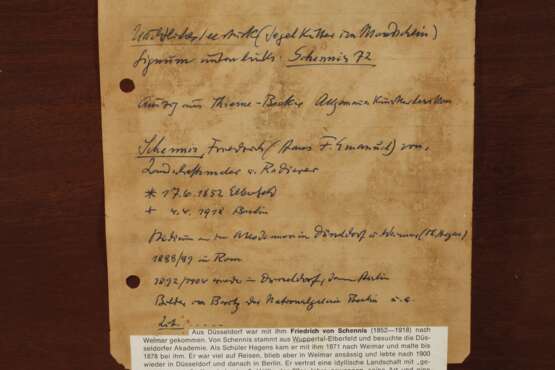 (Segel Kutter im Mondschein)
Signum unten links: Schennis 72
Auszug aus Thieme-Becker Allgemeines Künstlerlexikon
Schennis, Friedrich (Hans F. Emanuel) von,
Landschaftsmaler u. Radierer
* 17.6.1852 Elberfeld
+ 4.4.1918 Berlin
Studium an den Akademien in Düsseldorf u. Weimar (Th. Hagen)
1888/89 in Rom
1892/1900 wieder in Düsseldorf, dann Berlin
Bilder im Besitz der Nationalgalerie Berlin u.a.
Lit. .....
Aus Düsseldorf war mit ihm Friedrich von Schennis (1852—1918) nach
Weimar gekommen. Von Schennis stammt aus Wuppertal-Elberfeld und besuchte die Düs-
seldorfer Akademie. Als Schüler Hagens kam er mit ihm 1871 nach Weimar und malte bis
1878 bei ihm. Er war viel auf Reisen, blieb aber in Weimar ansässig und lebte nach 1900
wieder in Düsseldorf und danach in Berlin. Er vertrat eine idyllische Landschaft mit „ge-